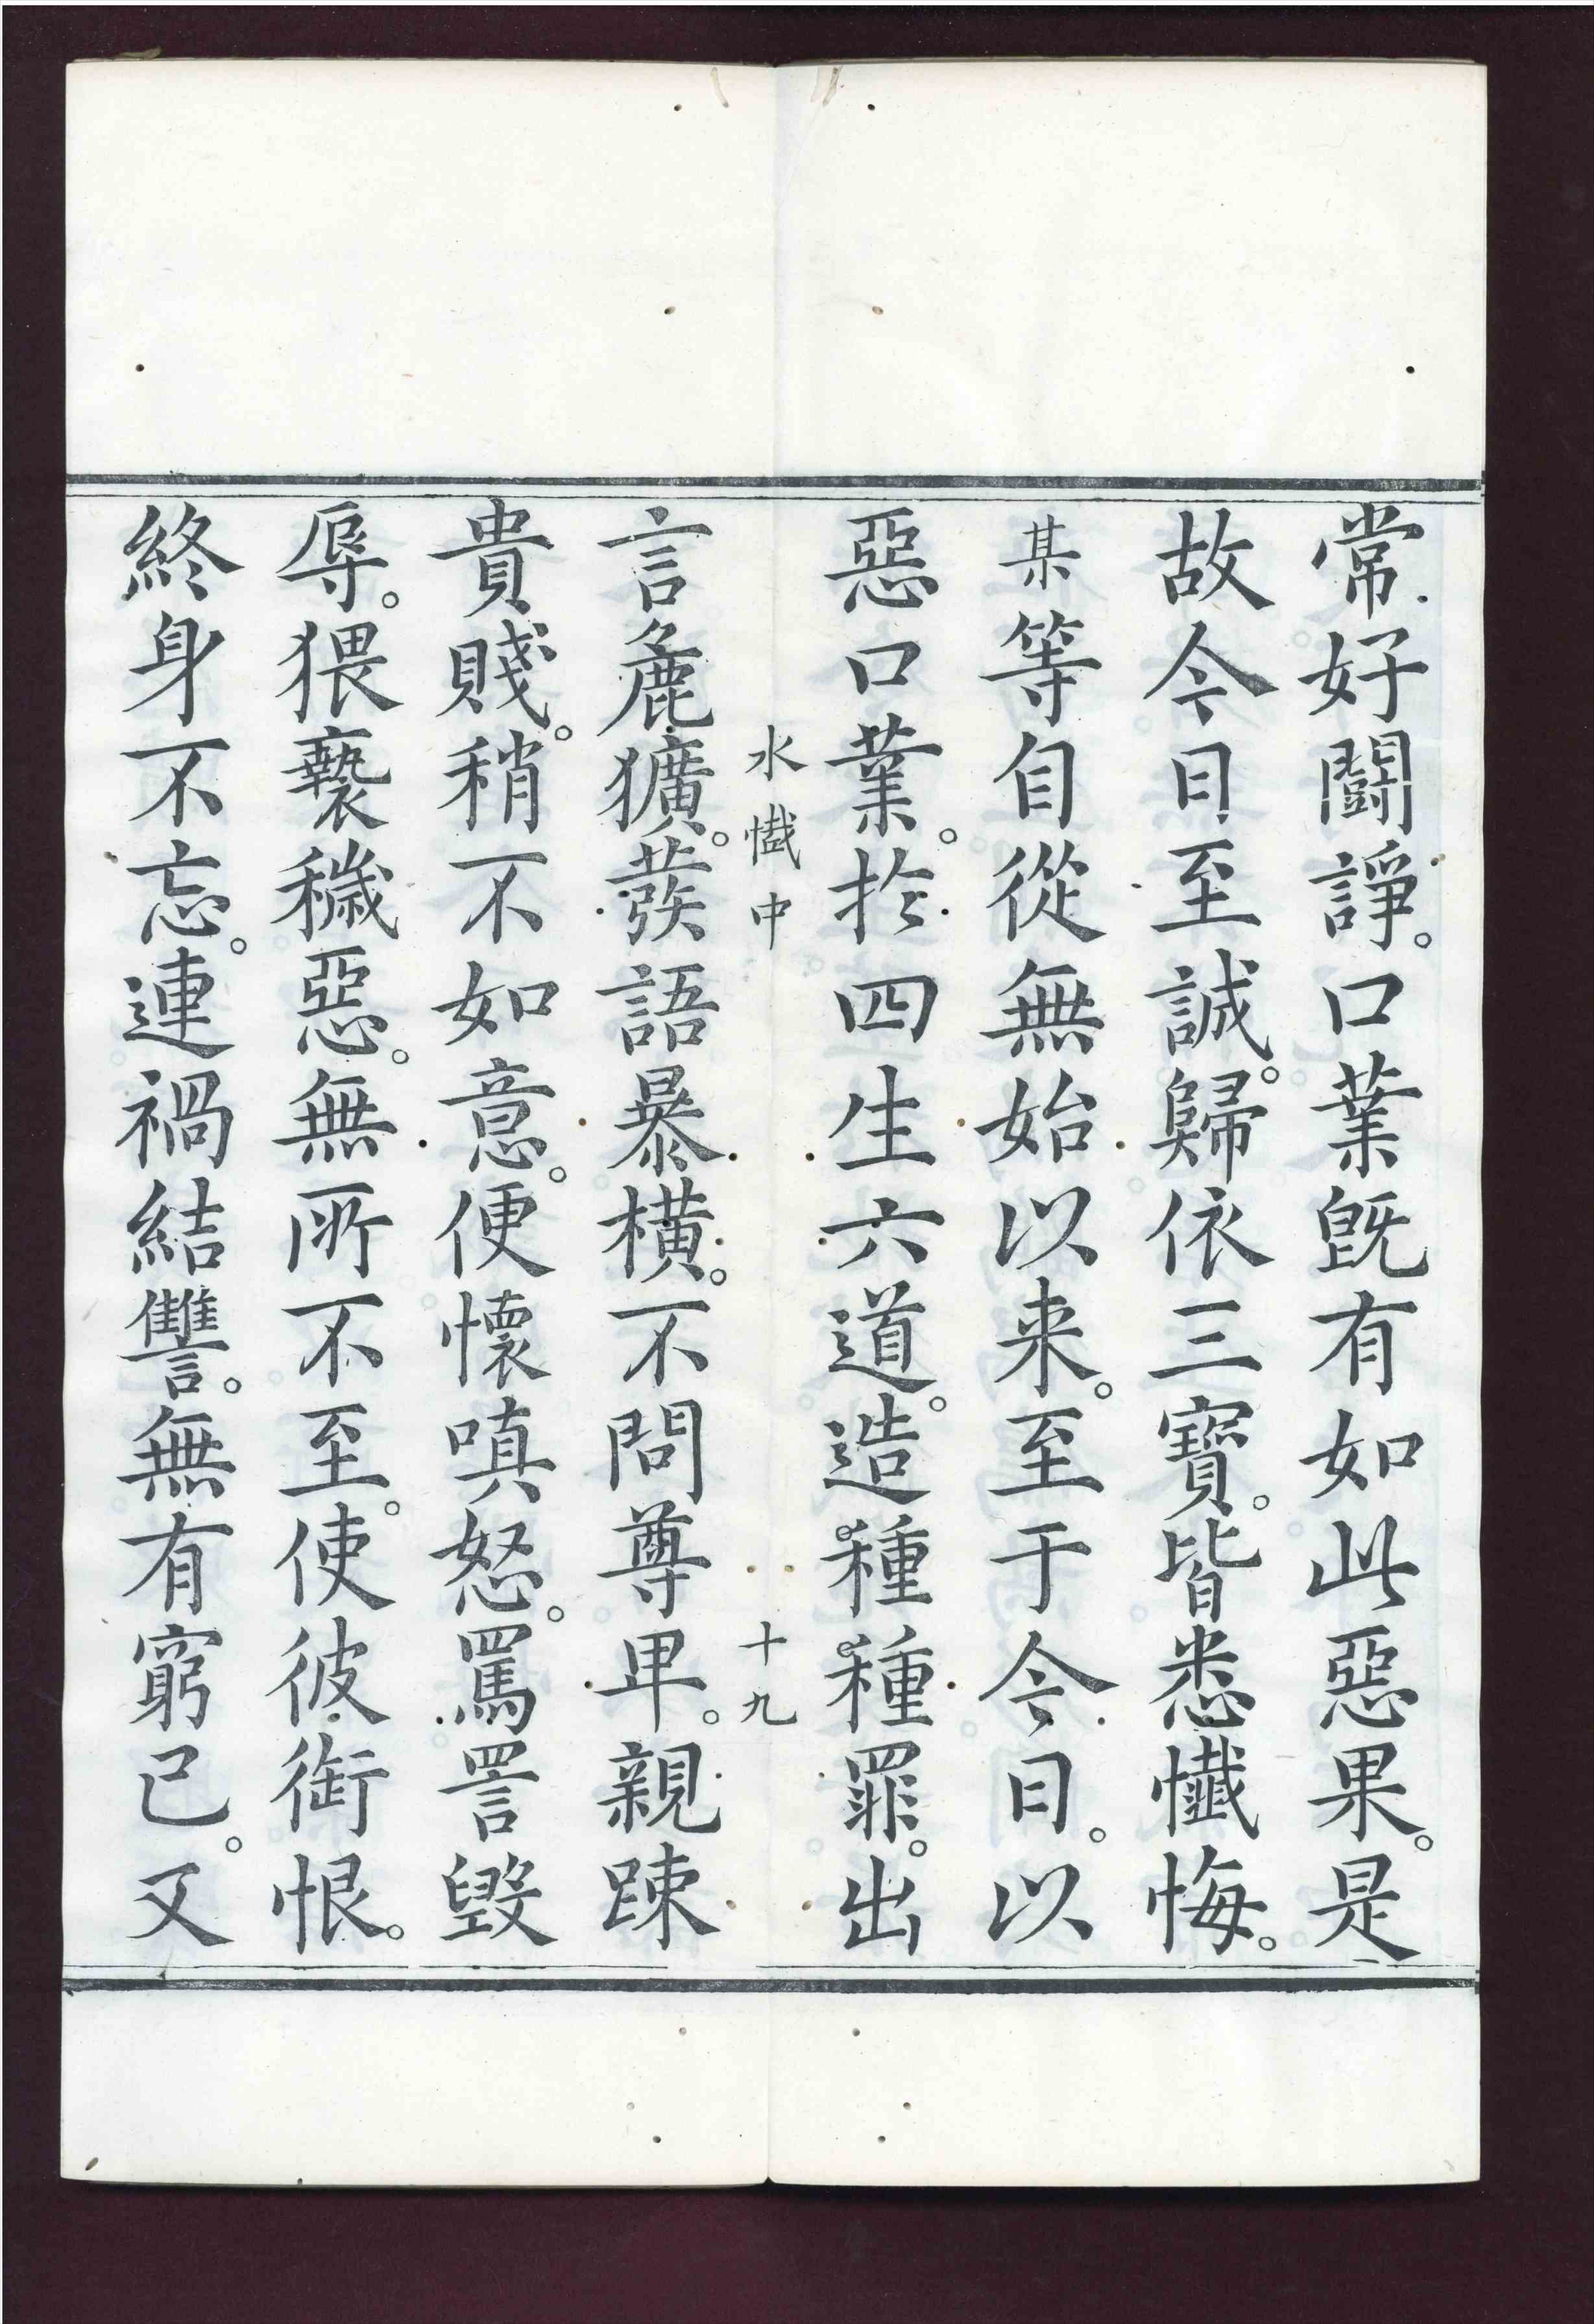 常好鬪諍。口業旣有如此惡果。是
故今日至誠。歸依三寶。皆悉懺悔。
某等自從無始以来。至于今日。以
惡口業。於四生六道。造種種罪。出
水懺中 十九
言麁獷。發語暴橫。不問尊卑。親疎
貴賤。稍不如意。便懷嗔怒。罵詈毀
辱。猥褻穢惡。無所不至。使彼銜恨。
終身不忘。連禍結讐。無有窮已。又